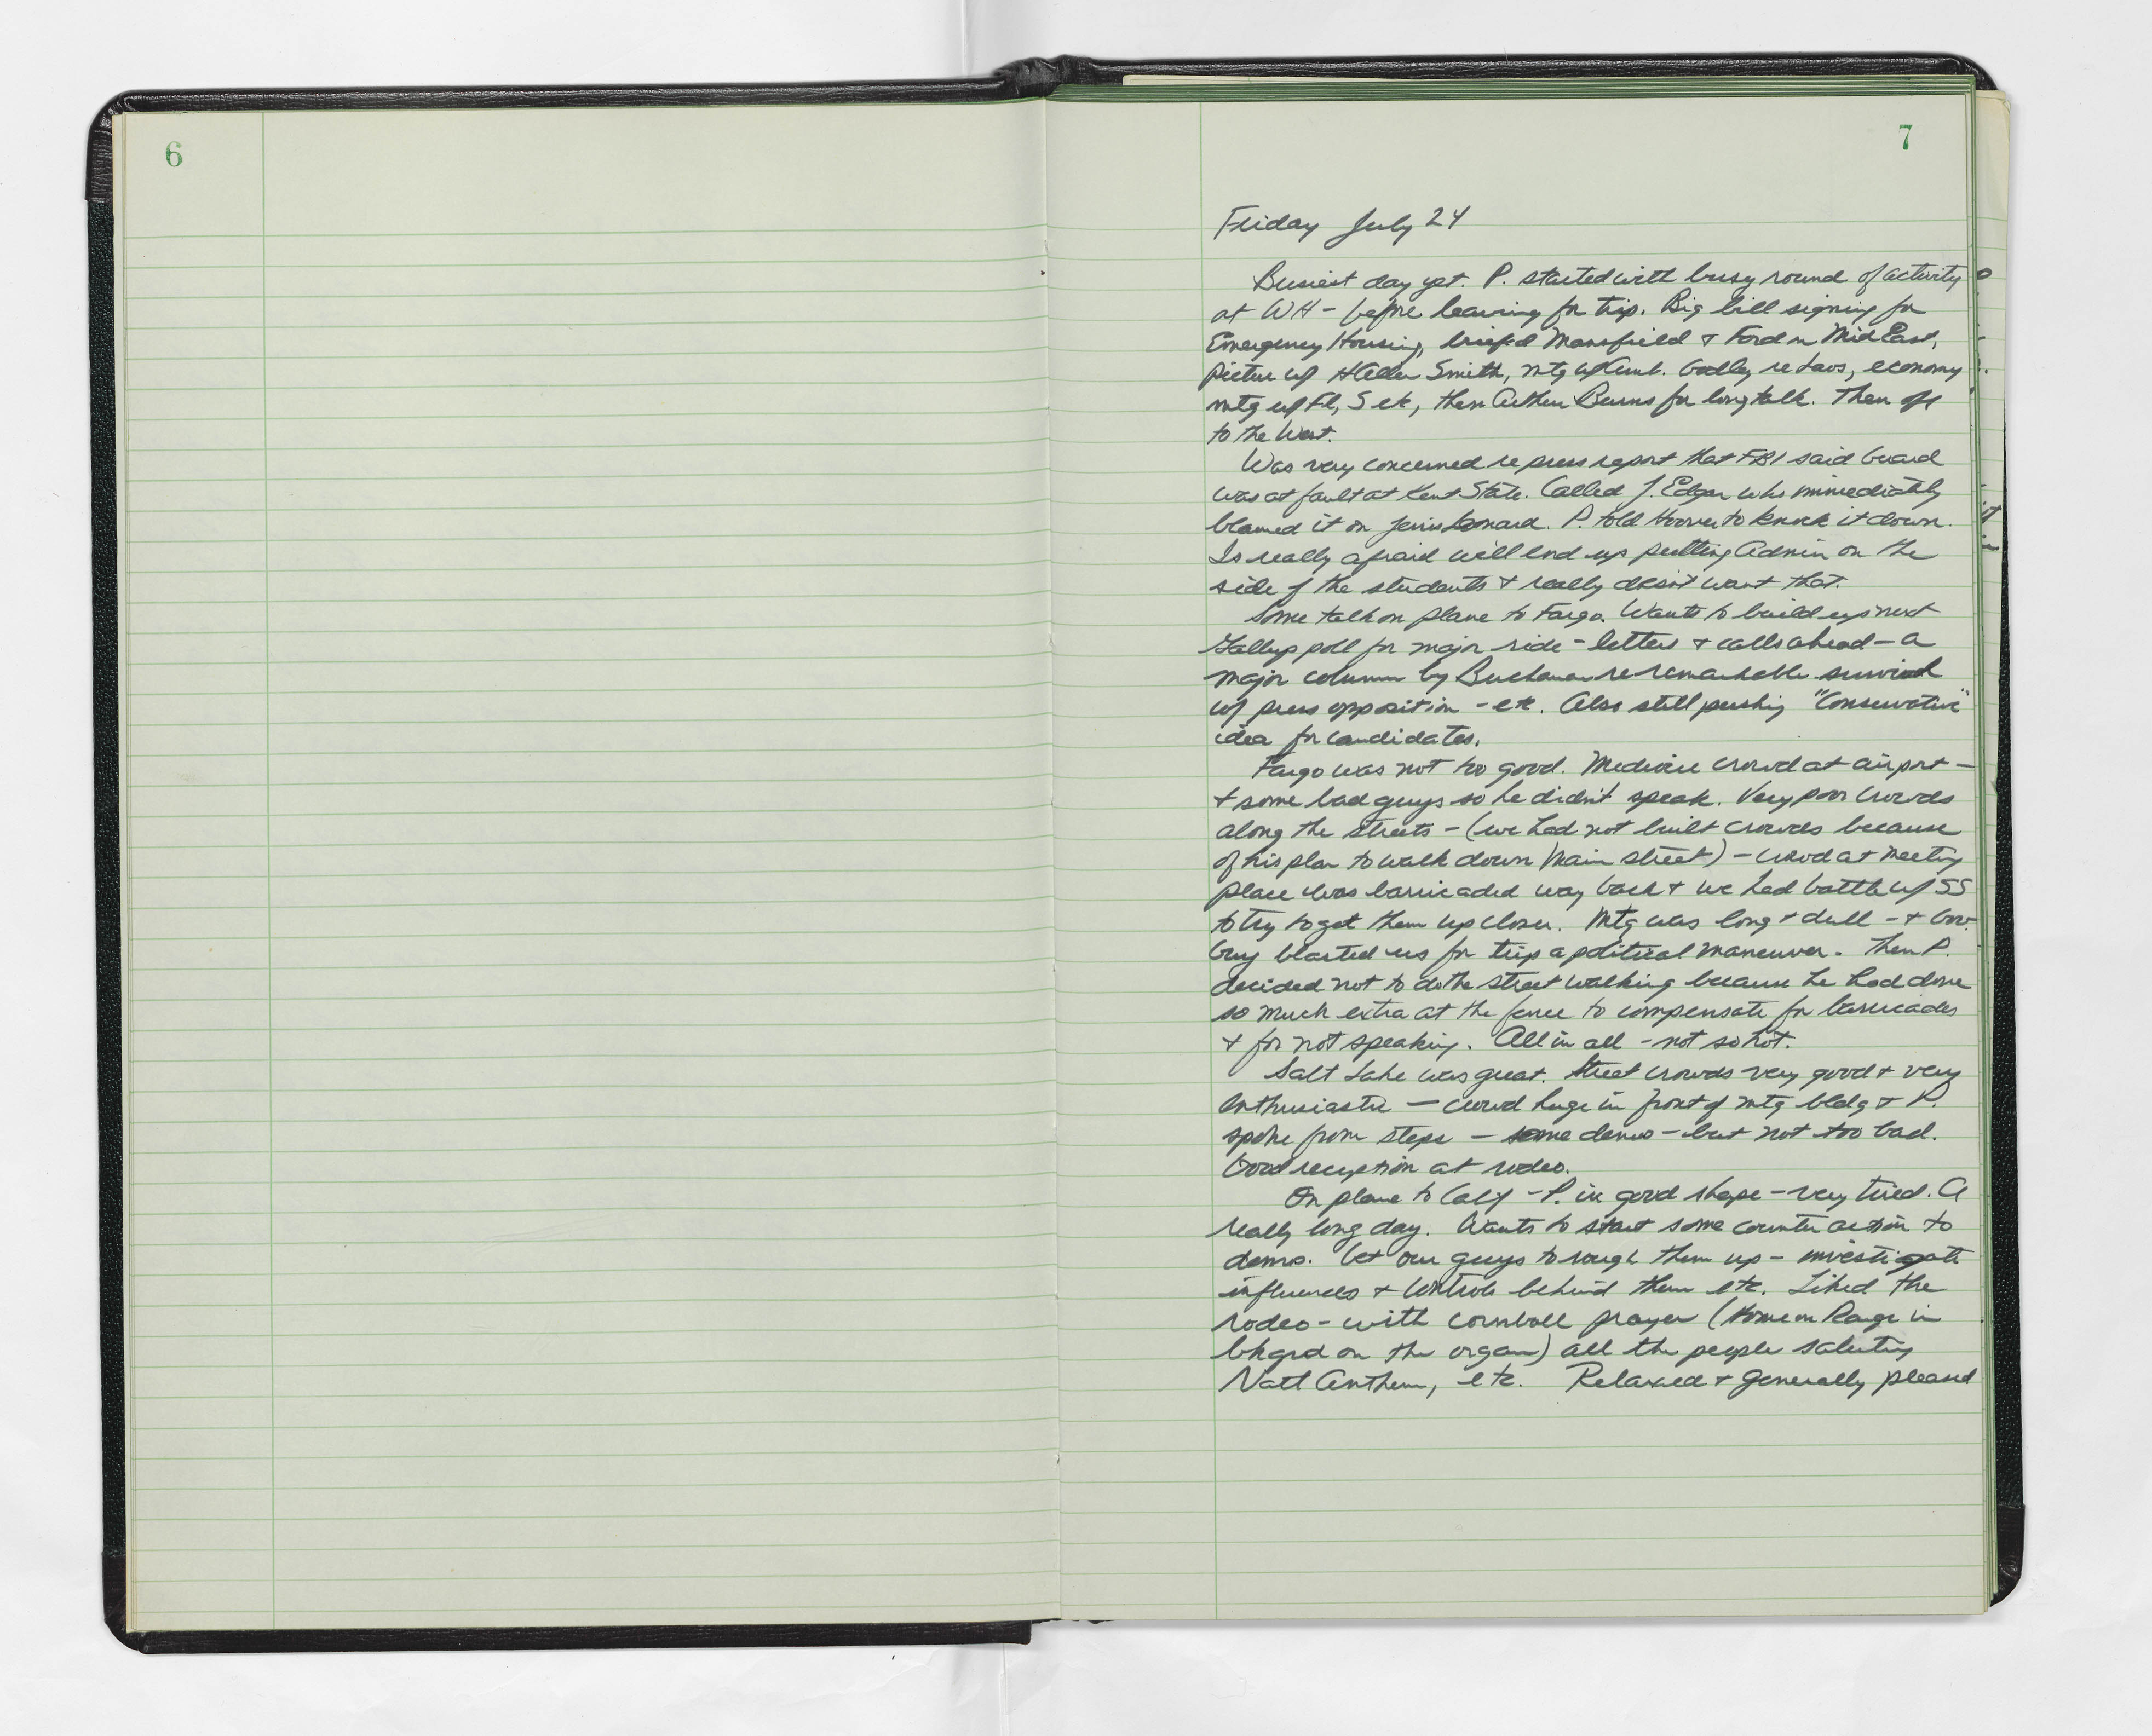 6
7
Friday July 24
Busiest day yet. P. started with busy round of activity
at WH - before leaving for trip. Big bill signing for
Emergency Housing, briefed Mansfield & Ford on Mid East,
picture w/ H Allen Smith, mtg w/ Amb. Godley re Laos, economy
mtg w/ Fl, S etc, then Arthur Burns for long talk. Then off
to the West.
Was very concerned re press report that FBI said Guard
was at fault at Kent State. Called J. Edgar who immediately
blamed it on Jerris Leonard. P. told Hoover to knock it down.
Is really afraid will end up putting Admin on the
side of the students & really doesn't want that.
Some talk on plane to Fargo. Wants to build up next
Gallup poll for major ride - letters & calls ahead - a
major column by Buchanan re remarkable survival
w/ press opposition - etc. Also still pushing "Conservative"
idea for candidates.
Fargo was not too good. Mediocre crowd at airport -
& some bad guys so he didn't speak. Very poor crowds
along the streets - (we had not built crowds because
of his plan to walk down Main street) - crowd at meeting
place was barricaded way back & we had battle w/ SS
to try to get them up closer. Mtg was long & dull - & Gov.
Guy blasted us for trip a political maneuver. Then P.
decided not to do the street walking because he had done
so much extra at the fence to compensate for barricades
& for not speaking. All in all - not so hot.
Salt Lake was great. Street crowds very good & very
enthusiastic - crowd huge in front of mtg bldg & P.
spoke from steps - some demo - but not too bad.
Good reception at rodeo.
On plane to Calif - P. in good shape - very tired. A
really long day. Wants to start some counter action to
demo. Get our guys to rough them up - investigate
influences & controls behind them etc. Liked the
rodeo - with cornball prayer (Home on Range in
bkgrd on the organ) all the people saluting
Natl Anthem, etc. Relaxed & generally pleased